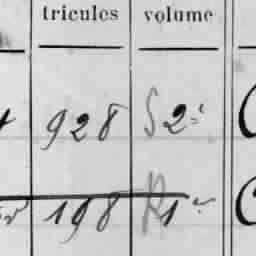 tricules volume
928 S 2e
198 R 1er